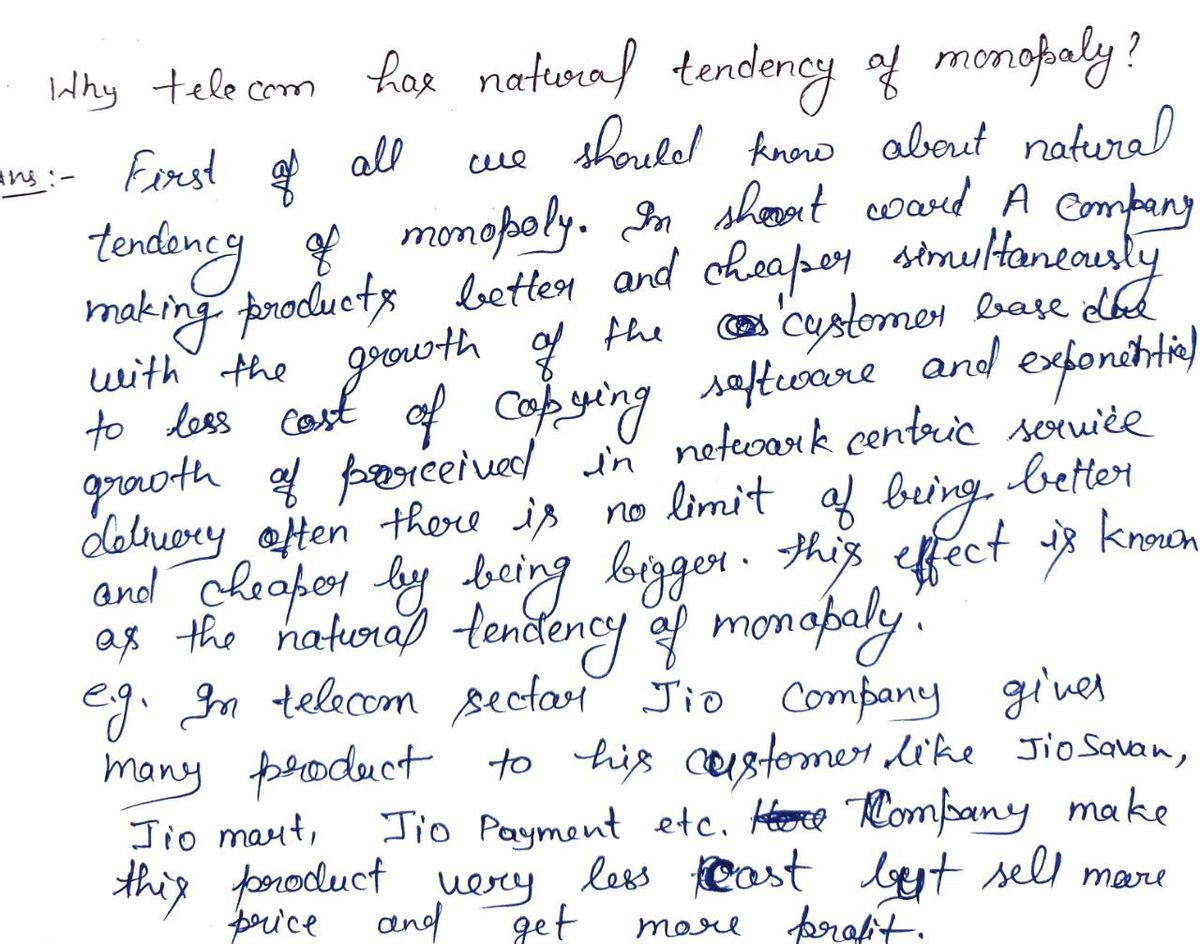 Why telecom has natural tendency of monopaly?
Ans:- First of all we should know about natural
tendency of monopoly. In short word A Company
making products better and cheaper simultaneously
with the growth of the customer base due
to less cost of copying software and exponential
growth of perceived in network centric service
delivery often there is no limit of being better
and cheaper by being bigger. this effect is known
as the natural tendency of monopaly.
e.g. In telecom sector Jio Company gives
many product to his customer like JioSavan,
Jio mart, Jio Payment etc. Company make
this product very less cost but sell more
price and get more profit.